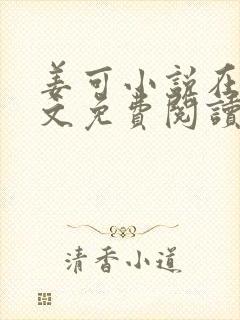 姜可小说在
文免費閱讀
清香小道